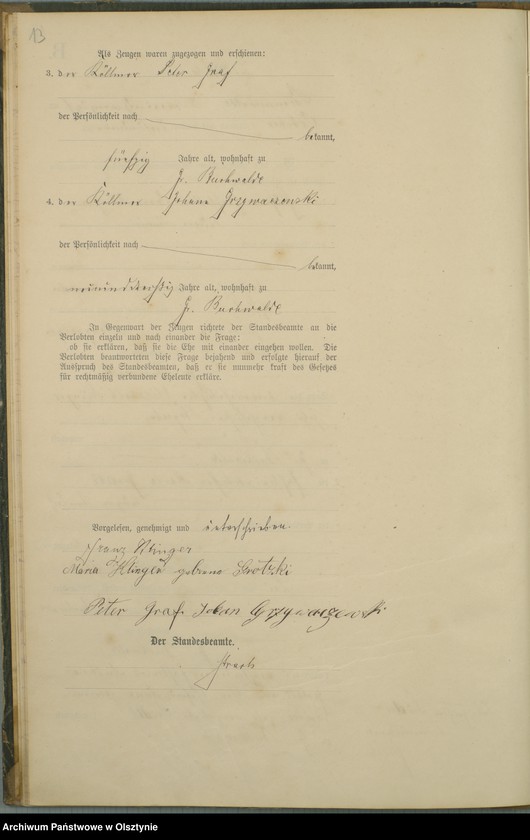 13
Als Zeugen waren zugezogen und erschienen:
3. der Köllmer Peter Graf
der Persönlichkeit nach
bekannt,
fünfzig Jahre alt, wohnhaft zu
Gr. Buchwalde
4. der Köllmer Johann Grzywaczewski
der Persönlichkeit nach
bekannt,
neununddreißig Jahre alt, wohnhaft zu
Gr. Buchwalde
In Gegenwart der Zeugen richtete der Standesbeamte an die
Verlobten einzeln und nach einander die Frage:
ob sie erklären, daß sie die Ehe mit einander eingehen wollen. Die
Verlobten beantworteten diese Frage bejahend und erfolgte hierauf der
Ausspruch des Standesbeamten, daß er sie nunmehr kraft des Gesetzes
für rechtmäßig verbundene Eheleute erkläre.
Vorgelesen, genehmigt und unterschrieben.
Franz Klinger
Maria Klinger geborene
Peter Graf. Johan Grzywaczewski
Der Standesbeamte.
Archiwum Państwowe w Olsztynie